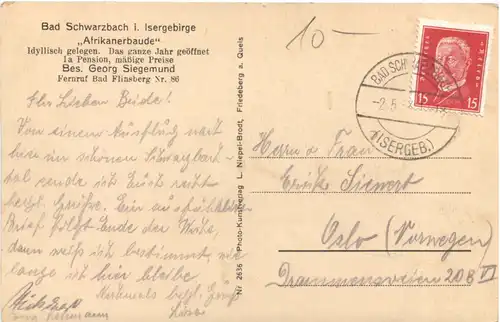 Bad Schwarzbach i. Isergebirge
„Afrikanerbaude"
Idyllisch gelegen. Das ganze Jahr geöffnet
1a Pension, mäßige Preise
Bes. Georg Siegemund
Fernruf Bad Flinsberg Nr. 86
Ihr Lieben Beide!
Von einem Ausflug nach
hier im schönen Schwarzbach-
tal sende ich Euch recht
herzl. Grüße. Ein ausführlicher
Brief folgt Ende der Woche,
dann weiß ich bestimmt, wie
lange ich hier bleibe
Nochmals herzl. Grüße
Nr 2636 Photo-Kunstverlag L. Niepel-Brodt, Friedeberg a. Queis
10-
15 15
BAD SCHWARZBACH
-2.5.
(ISERGEB.)
Herrn u. Frau
Erich Siewert
Oslo (Norwegen)
Drammensveien 20B VI